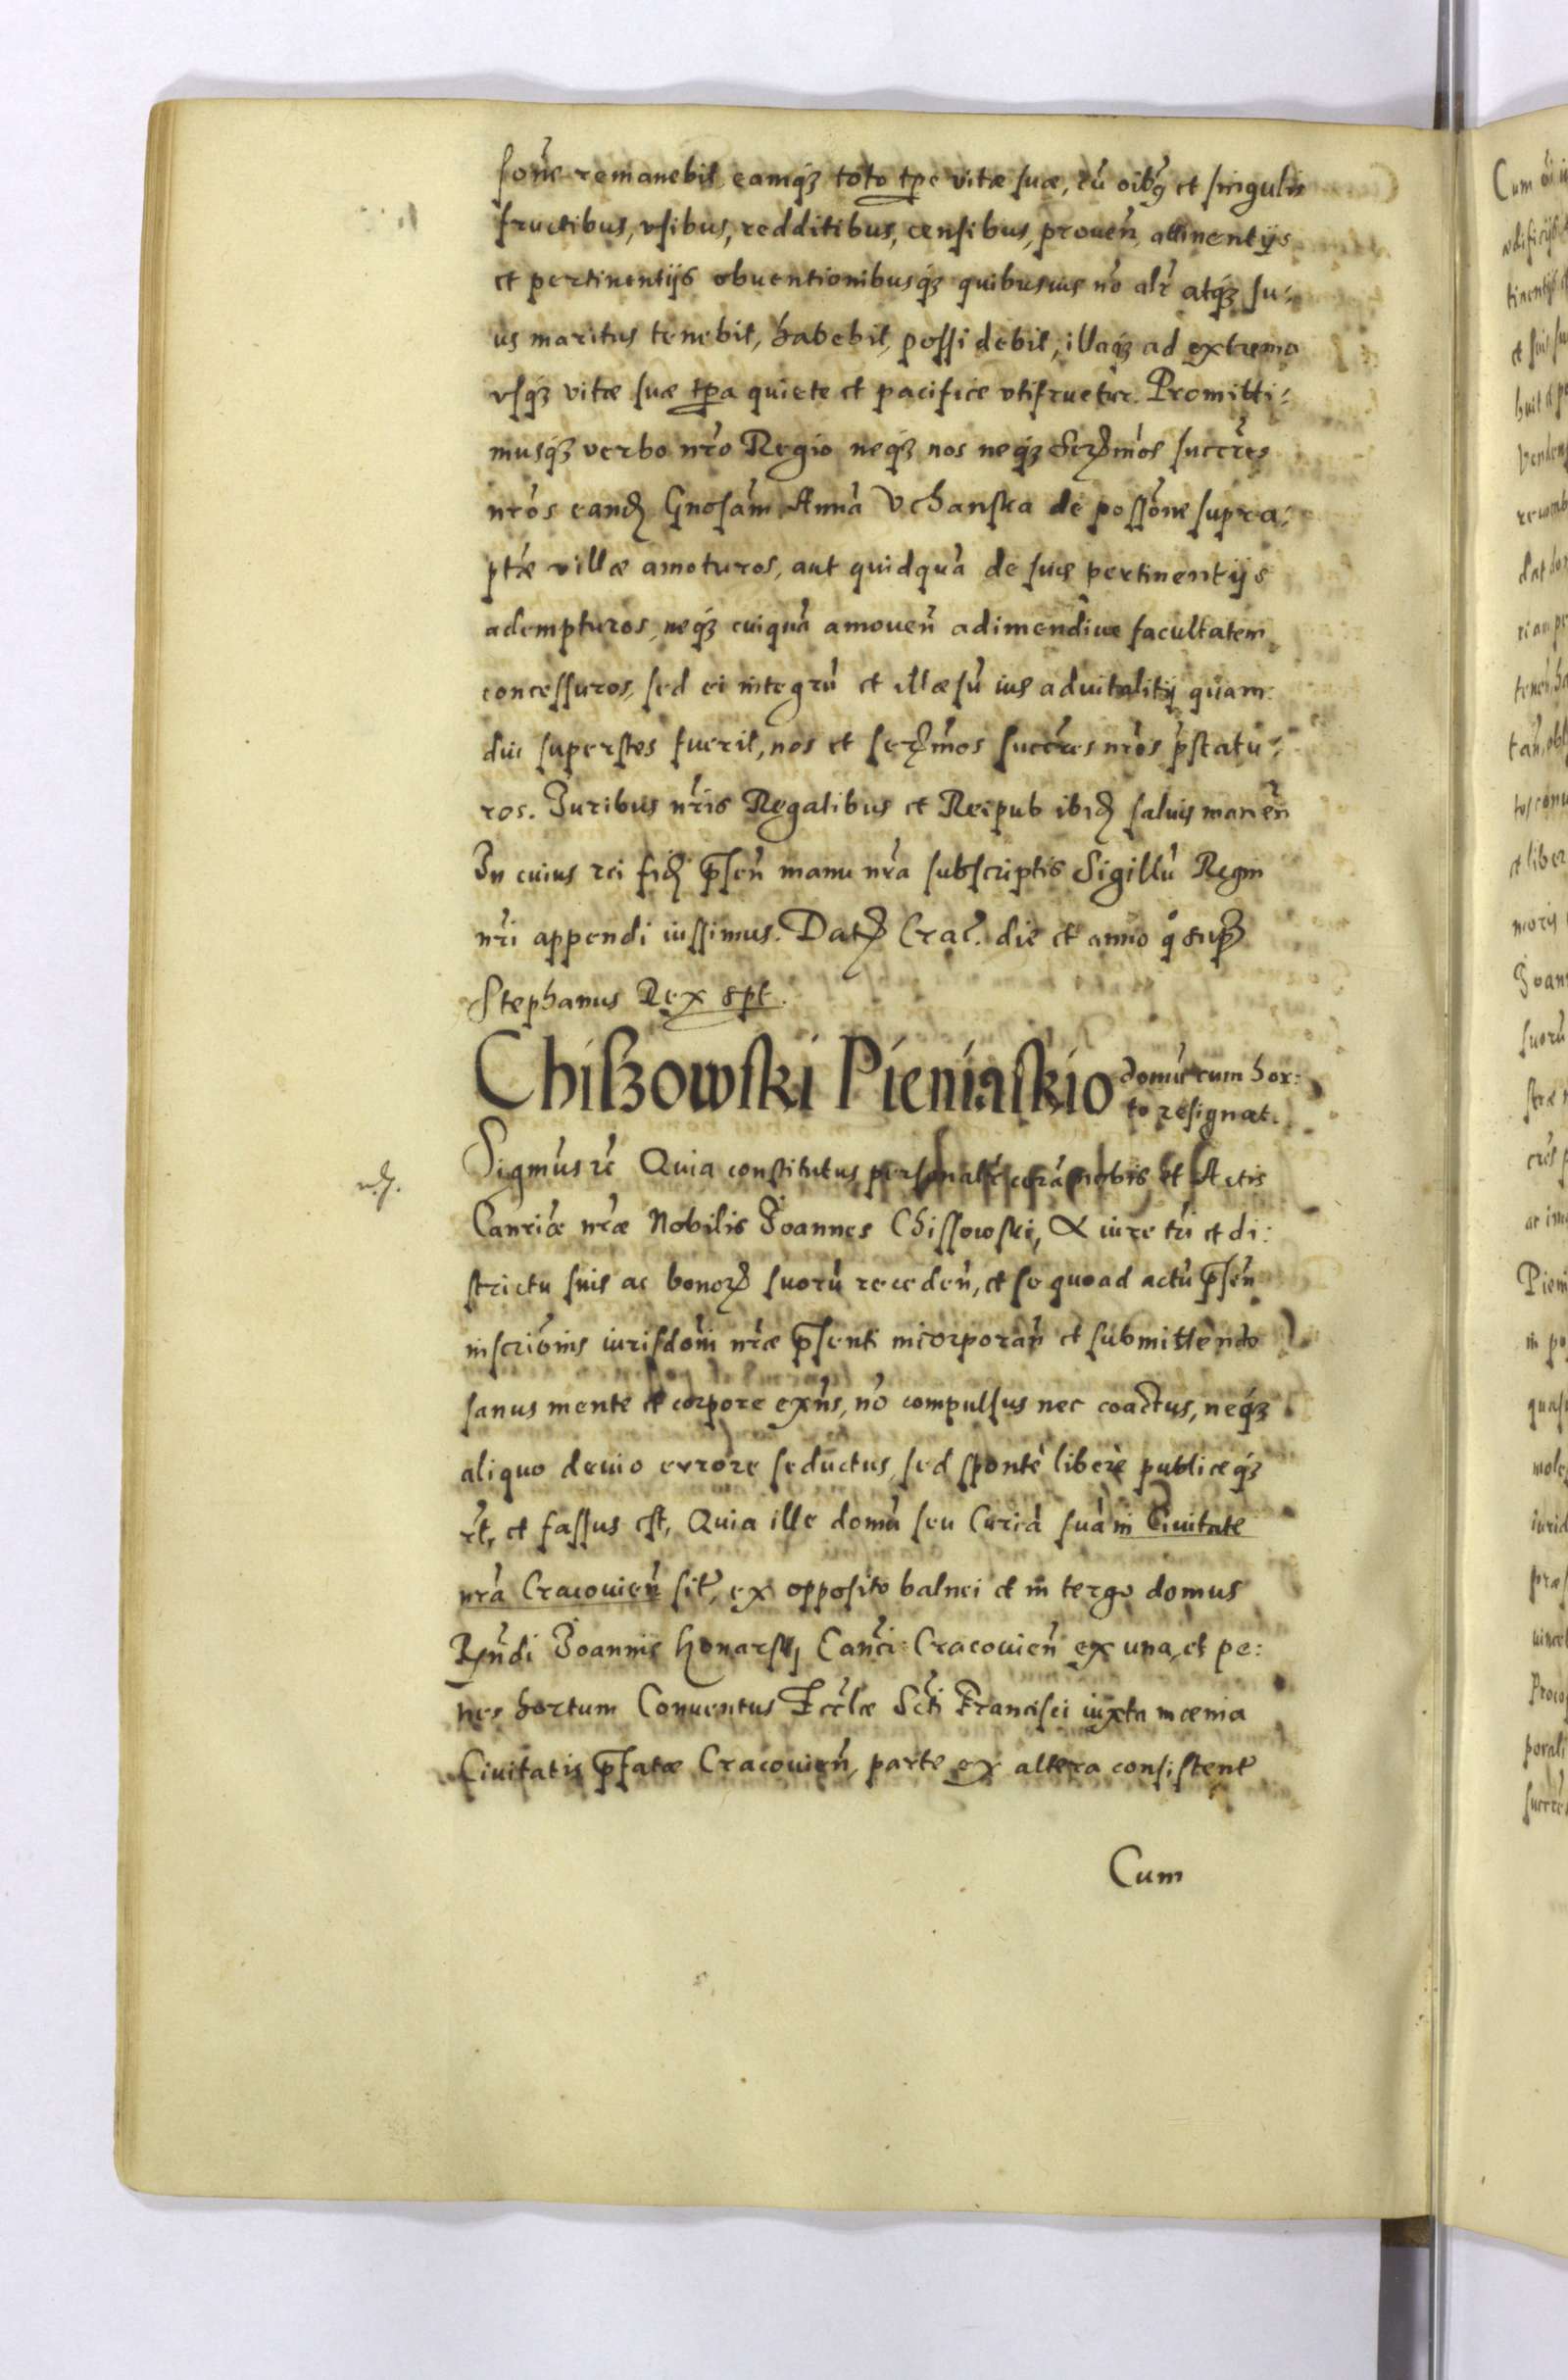 sone remanebit, eamq3 toto tpe vitæ suæ, cū oibq et singulis
fructibus, vsibus, redditibus, censibus, prouen̄, attinentijs
et pertinentijs obuentionibusq3 quibusuis nō alr̄ atq3 su:
us maritus tenebit, habebit, possidebit, illaq3 ad extrema
vsq3 vitæ suæ tpa quiete et pacifice vtifruetur. Promitti:
musq3 verbo nr̄o Regio neq3 nos neq3 Ser̄mos succr̄es
nr̄os eand Gnosam Annā Vchanska de possōne supra:
ptæ villæ amoturos, aut quidquā de suis pertinentijs
adempturos, neq3 cuiquā amouen̄ adimendiue facultatem
concessuros, sed ei integrū et illæsū ius aduitalitij quam:
diu superstes fuerit, nos et ser̄mos succr̄es nr̄os p̄statu:
ros. Juribus nr̄is Regalibus et Reipub ibid saluis manen̄
In cuius rei fid p̄sen̄ manu nr̄a subscriptis Sigillū Regni
nr̄i appendi iussimus. Dat Crac. die et anno qo sup
Stephanus Rex spt.
Chiszowski Pieniaskio domū cum hor:
to resignat.
Sigmūs rc̄ Quia constitutus personalr̄ corā nobis et Actis
Canriæ nr̄æ Nobilis Joannes Chissowski, A iure tri et di:
strictu suis ac bonor suorū receden̄, et se quoad actū p̄sen̄
inscriōnis iurisdōni nr̄æ p̄senti incorporan̄ et submittendo
sanus mente et corpore exn̄s, nō compulsus nec coactus, neq3
aliquo deuio errore seductus, sed spontè liberè publiceq3
rt, et fassus est, Quia ille domū seu Curiā suā in Ciuitate
nr̄a Cracouien̄ sit, ex opposito balnei et in tergo domus
Rn̄di Joannis Konarsk Can̄ci: Cracouien̄ ex una, et pe:
nes hortum Conuentus Eccl̄æ Scti Francisci iuxta mœnia
Ciuitatis p̄fatæ Cracouien̄, parte ex altera consistent
Cum